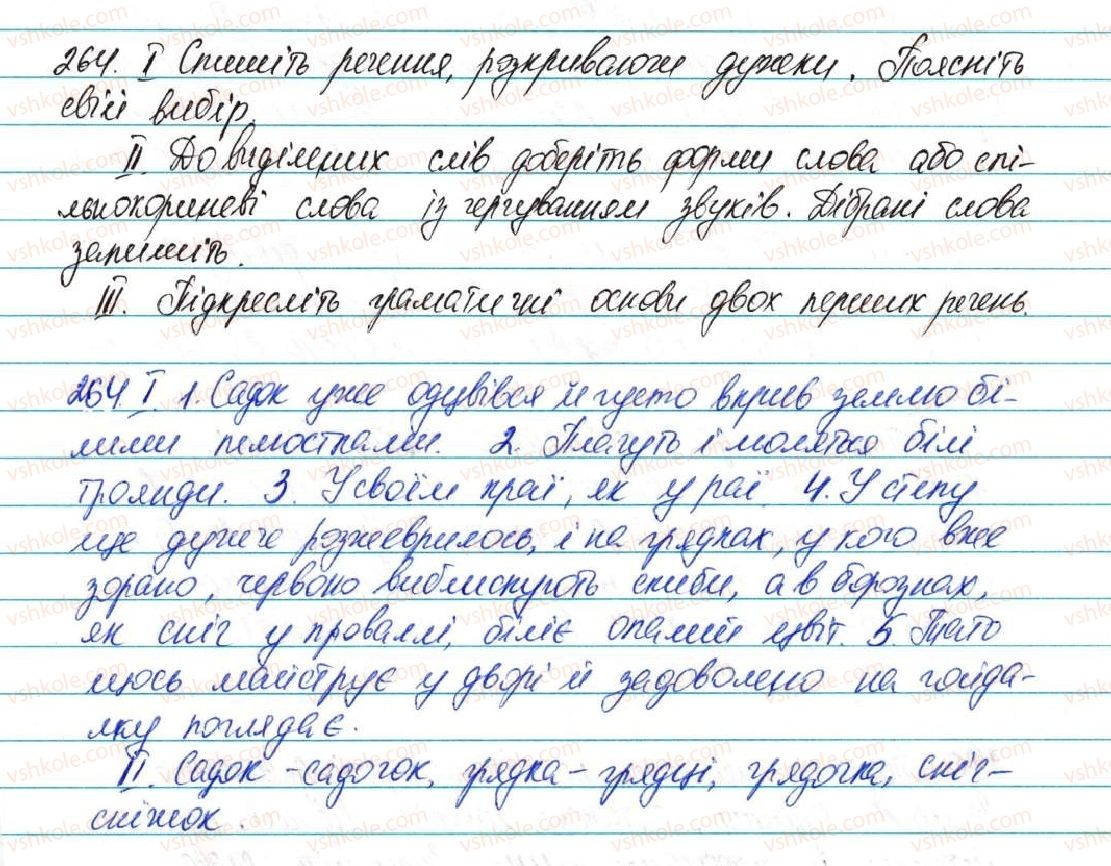 264. I Спишіть речення, розкриваючи дужки. Поясніть
свій вибір.
II. До виділених слів доберіть форми слова або спі-
льнокореневі слова із чергуванням звуків. Дібрані слова
запишіть.
III. Підкресліть граматичні основи двох перших речень.
264. I. 1. Садок уже одцвівся й густо вкрив землю бі-
лими пелюстками. 2. Плачуть і моляться білі
троянди. 3. У своїм краї, як у раї 4. У степу
ще дужче розжеврилось, і на грядках, у кого вже
зорано, червоно виблискують скиби, а в борознах,
як сніг у проваллі, біліє опалий цвіт. 5. Тато
щось майструє у дворі й задоволено на гойда-
лку поглядає.
II. Садок - садочок, грядка - грядці, грядочка, сніг -
сніжок.